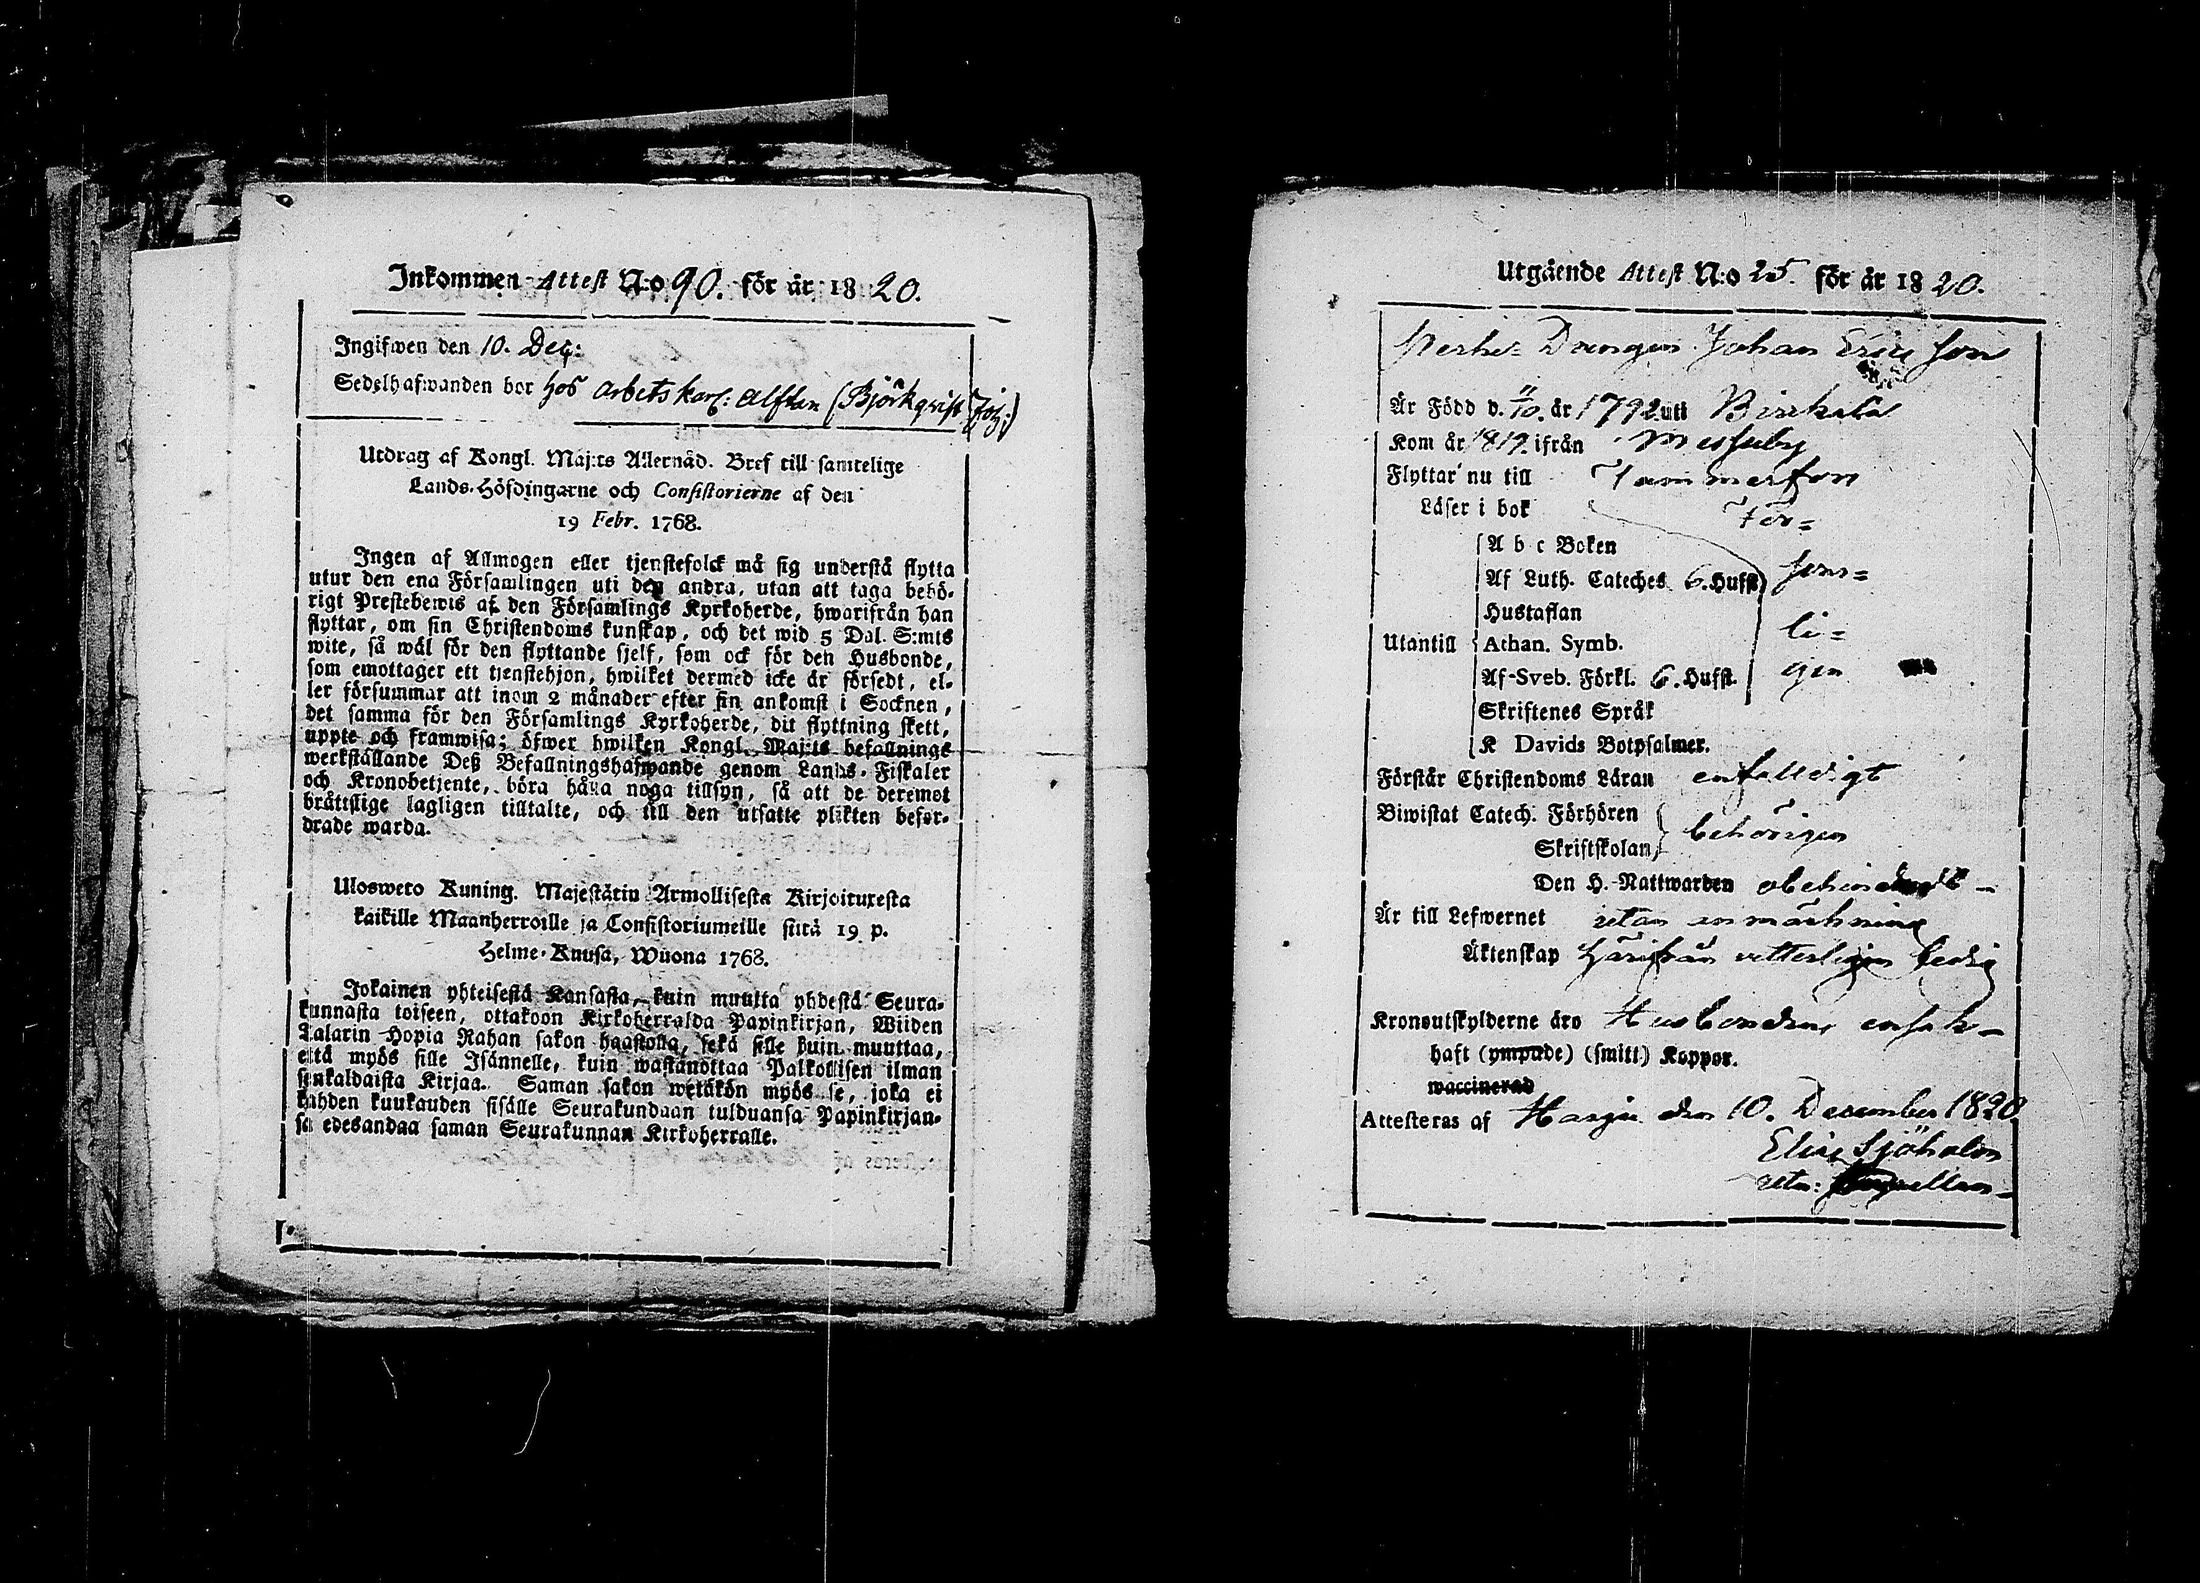 Inkommen Attest N:o 90. för år 1820.
Ingifwen den 10. Dec:
Sedelhafwanden bor hos arbetskarl: Alftan (Björkqvist Joh:)
Utdrag af Kongl. Maj:ts Allernåd. Bref till samtelige
Lands-Höfdingarne och Consistorierne af den
19 Febr. 1768.
Ingen af Allmogen eller tjenstefolck må sig understå flytta
utur den ena Församlingen uti den andra, utan att taga behö-
rigt Prestebewis af den Församlings Kyrkoherde, hwarifrån han
flyttar, om sin Christendoms kunskap, och det wid 5 Dal. S:mts
wite, så wäl för den flyttande sjelf, som ock för den Husbonde,
som emottager ett tjenstehjon, hwilket dermed icke är försedt, el-
ler försummar att inom 2 månader efter sin ankomst i Socknen,
det samma för den Församlings Kyrkoherde, dit flyttning skett,
uppte och framwisa; öfwer hwilken Kongl. Maj:ts befallnings
werkställande Deß Befallningshafwande genom Lands-Fiskaler
och Kronobetjente, böra hålla noga tillsyn, så att de deremot
bråttslige lagligen tilltalte, och till den utsatte plikten befor-
drade warda.
Ulosweto Kuning. Majestätin Armollisesta Kirjoituxesta
kaikille Maanherroille ja Consistoriumeille siitä 19 p.
Helme-Kuusa, Wuona 1768.
Jokainen yhteisestä Kansasta, kuin muutta yhdestä Seura-
kunnasta toiseen, ottakoon Kirkoherralda Papinkirjan, Wiiden
Talarin Hopia Rahan sakon haastolla, sekä sille kuin muuttaa,
että myös sille Isännelle, kuin wastanottaa Palkollisen ilman
senkaldaista Kirjaa. Saman sakon wetäkön myös se, joka ei
kahden kuukauden sisälle Seurakundaan tulduansa Papinkirjan-
sa edesandaa saman Seurakunnan Kirkoherralle.
Utgående Attest N:o 25. för år 1820.
Drengen Johan Erics son
Är Född d. 11/10. år 1792 uti Birkala
Kom år 1819. ifrån Messuby
Flyttar nu till Tammerfors
Läser i bok För=
A b c Boken
Af Luth. Cateches 6. Hufst. sam=
Hustaflan
Utantill Athan. Symb. li=
Af Sveb. Förkl. 6. Hufst. gen
Skriftenes Språk
K Davids Botpsalmer.
Förstår Christendoms Läran enfalldigt
Biwistat Catech. Förhören
behörigen
Skriftskolan,
Den H. Nattwarden obehindradt
Är till Lefwernet utan anmärkning
Äktenskap härifrån vetterligen ledig
Kronoutskylderne äro Husbondens ensak
haft (ympade) (smitt) Koppor.
waccinerad
Attesteras af Harju den 10. December 1820
Elias Sjöholm